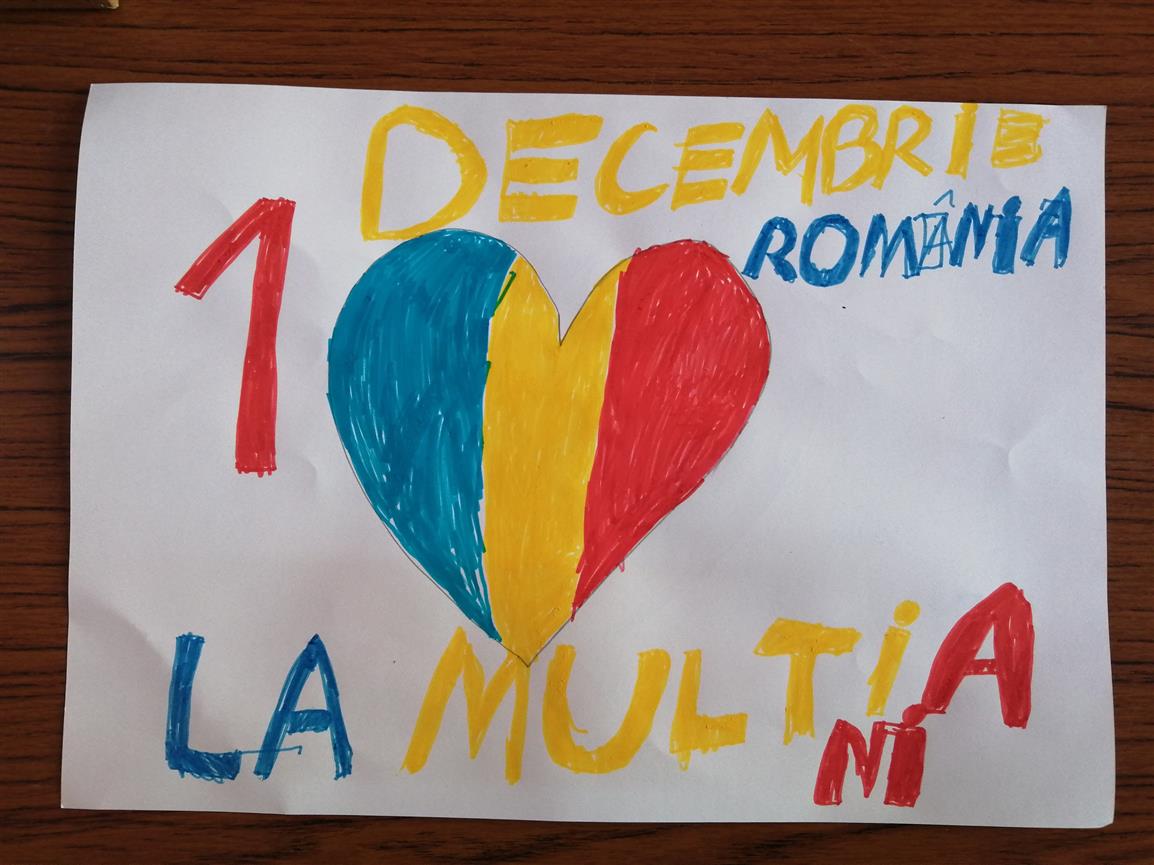 1 DECEMBRIE
ROMÂNiA
LA MULTi A
Ni